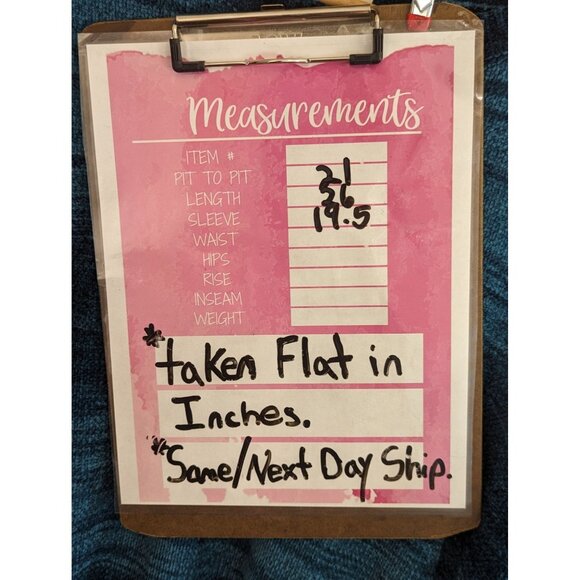 Measurements
ITEM #
PIT TO PIT 21
LENGTH 26
SLEEVE 19.5
WAIST
HIPS
RISE
INSEAM
WEIGHT
*taken Flat in
Inches.
*Same/Next Day Ship.